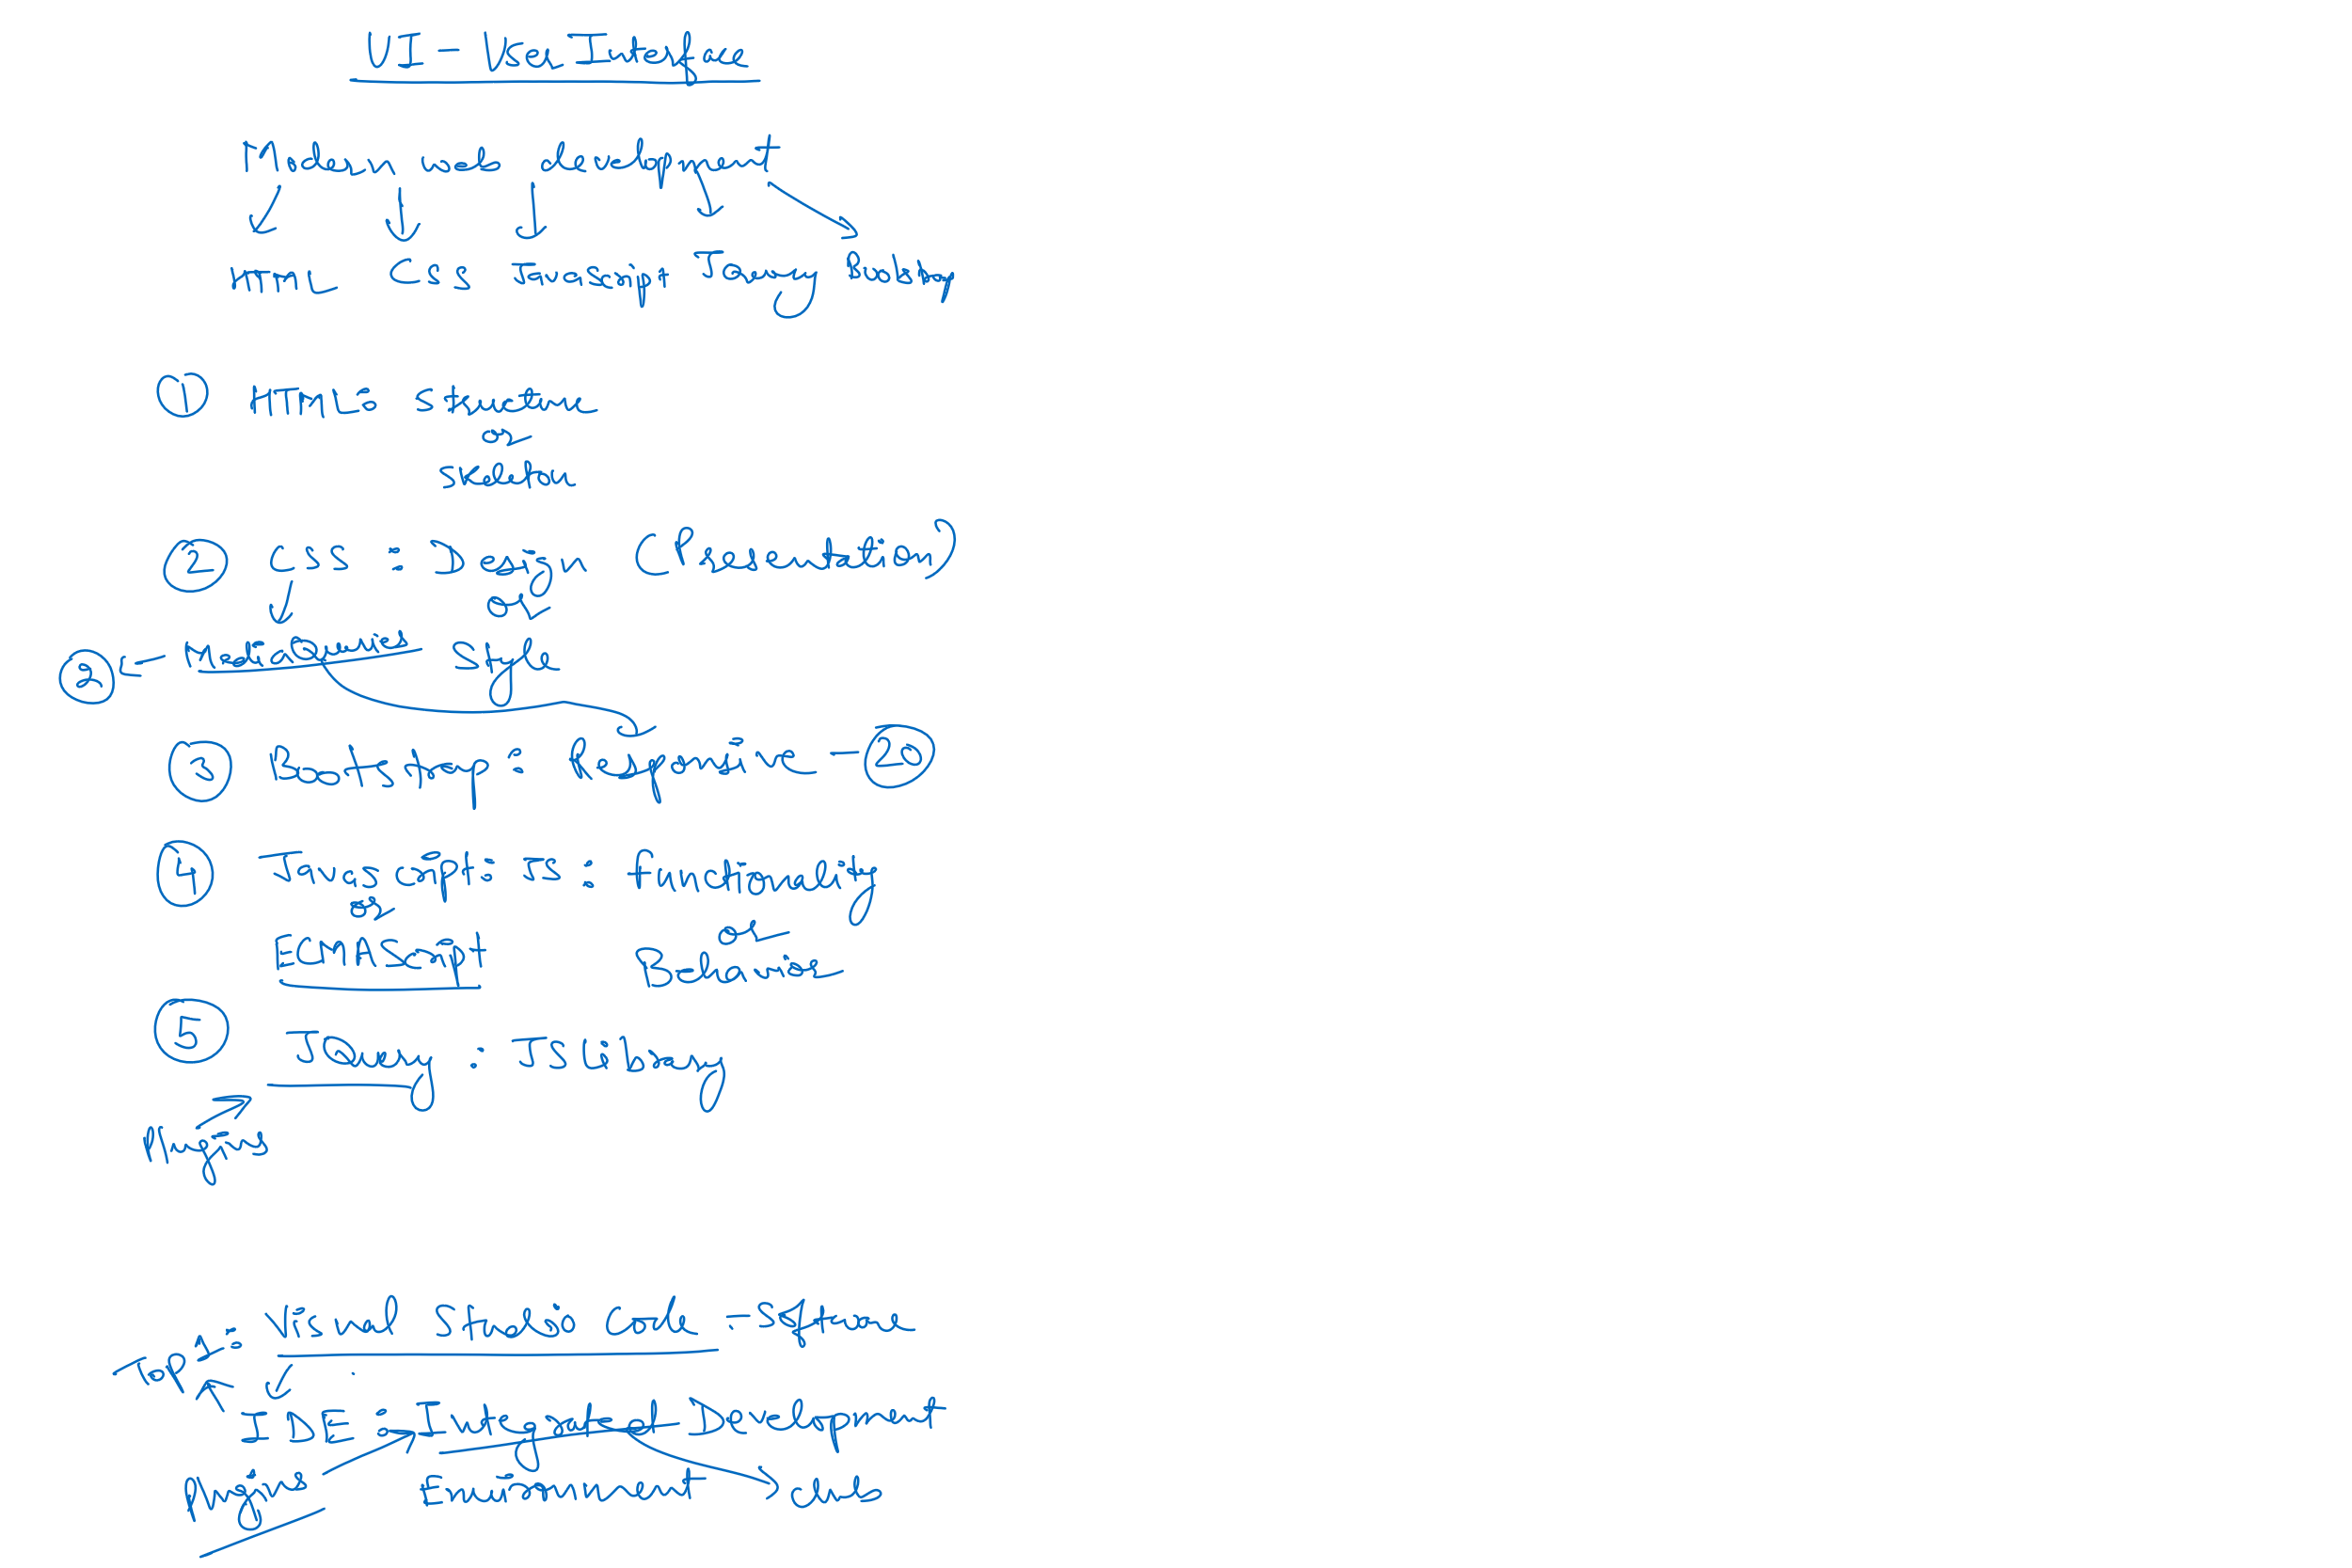 UI - User Interface
Modern web development
HTML CSS Javascript JQuery Bootstrap
① HTML: Structure
or
skeleton
② CSS : Design (Presentation)
or
② ← Media Queries Style
③ Bootstrap: Responsive - ②
④ Javascript: JS : functionality
or
ECMAScript or
Behaviour
⑤ JQuery : JS library
Plugins
Top 1: Visual Studio Code - Software
IDE : Integrated Development
Plugins Environment club